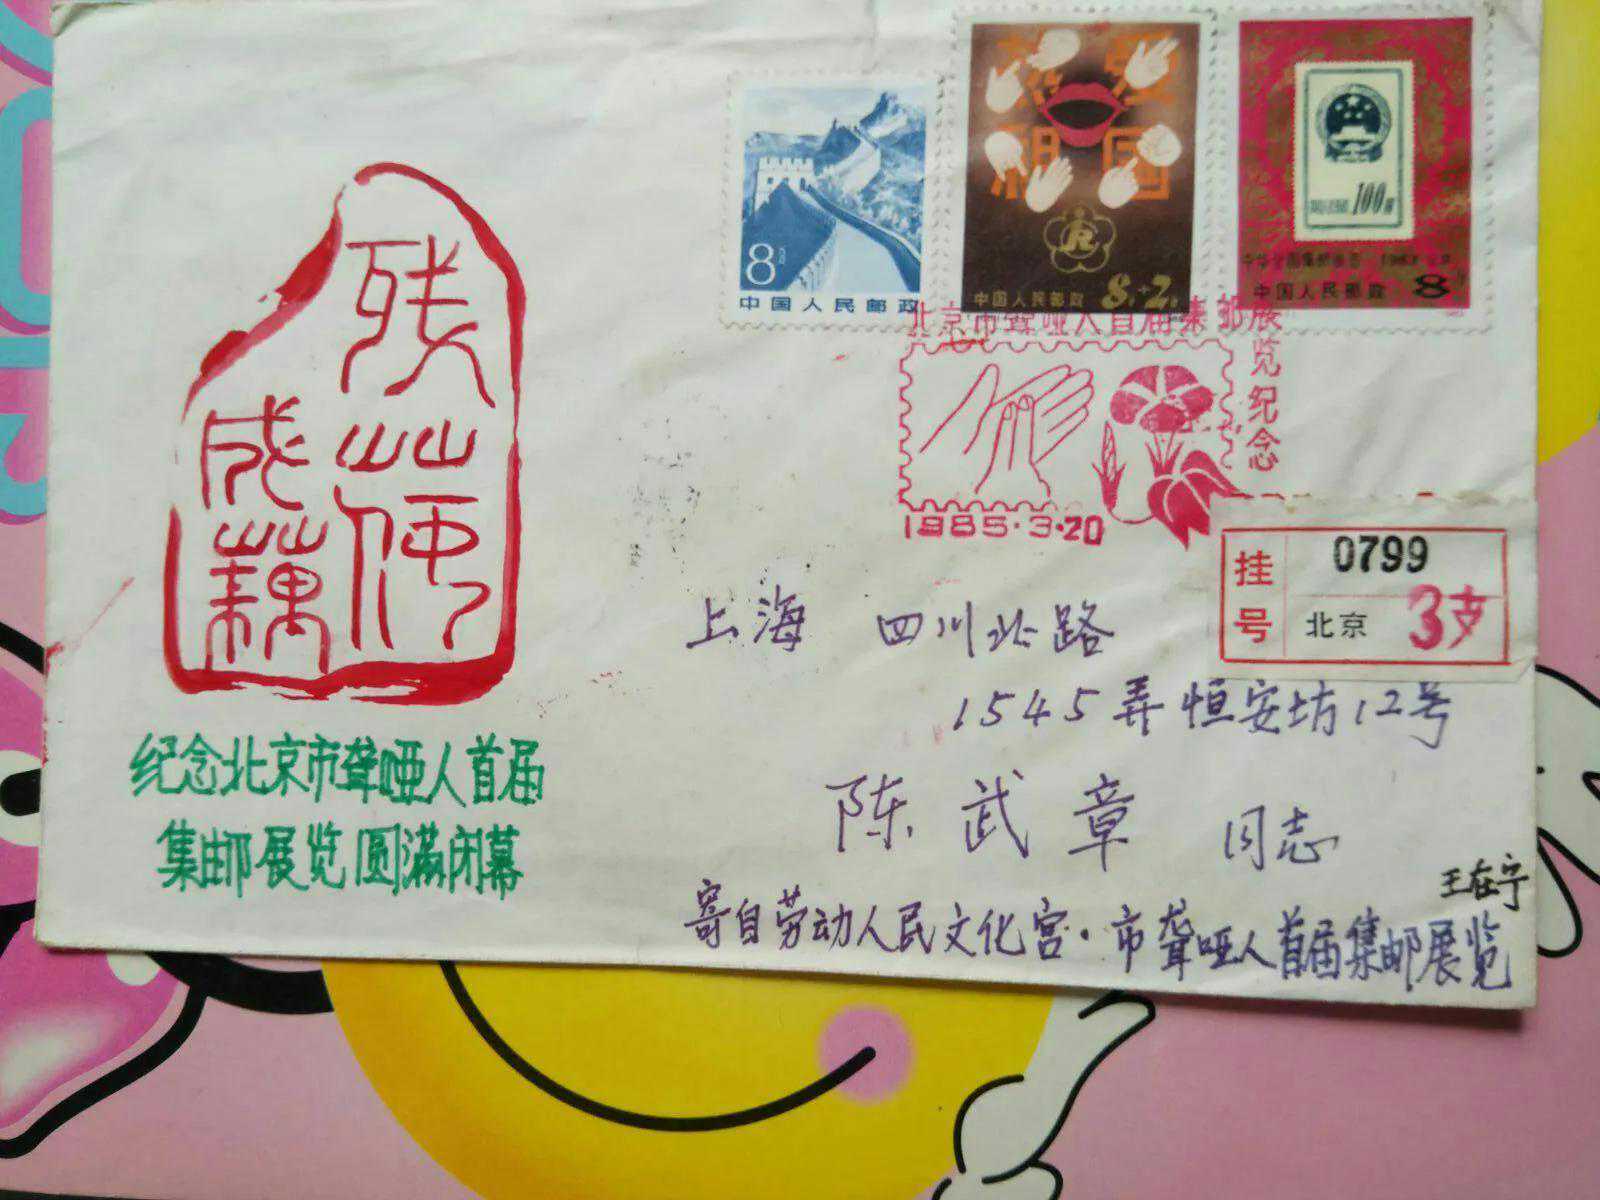 残花
成藕
纪念北京市聋哑人首届
集邮展览圆满闭幕
8分
中国人民邮政
热爱
祖国
中国人民邮政 8分+2分
100
中华全国集邮展览 1983 北京
中国人民邮政 8分
北京市聋哑人首届集邮展览纪念
1985.3.20
挂号
0799
北京 3支
上海 四川北路
1545弄恒安坊12号
陈武章 同志
王在宁
寄自劳动人民文化宫·市聋哑人首届集邮展览